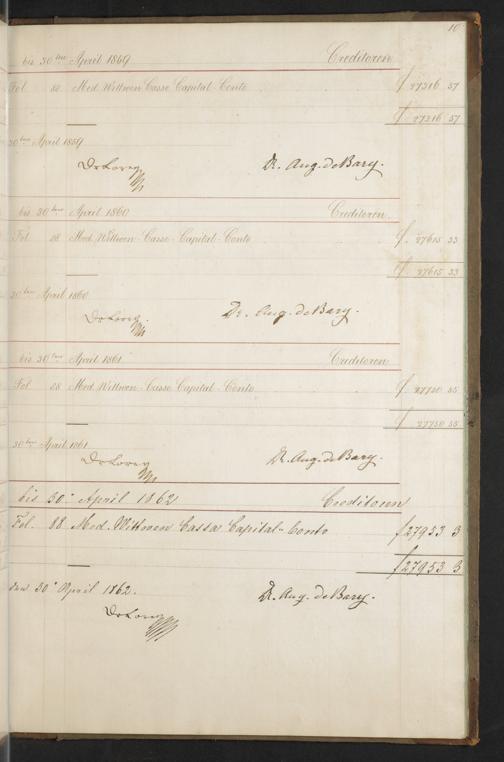 10
bis 30ten April 1859 Creditoren
Fol 88 Med. Wittwen Casse Capital Conto f 27316 57
f 27316 57
30ten April 1859
Dr Lorey Dr. Aug. de Bary.
bis 30ten April 1860 Creditoren
Fol 88 Med. Wittwen-Casse-Capital-Conto f. 27615 33
f 27615 33
30ten April 1860
Dr Lorey. Dr. Aug. de Bary.
bis 30ten April 1861 Creditoren
Fol 88 Med. Wittwen-Casse Capital-Conto f 27750 55
f 27750 55
30ten April 1861
Dr Lorey Dr. Aug. de Bary.
bis 30t April 1862 Creditoren
Fol. 88 Med. Wittwen Cassa Capital-Conto f 27953 3
f 27953 3
den 30t April 1862.
Dr Lorey Dr. Aug. de Bary.